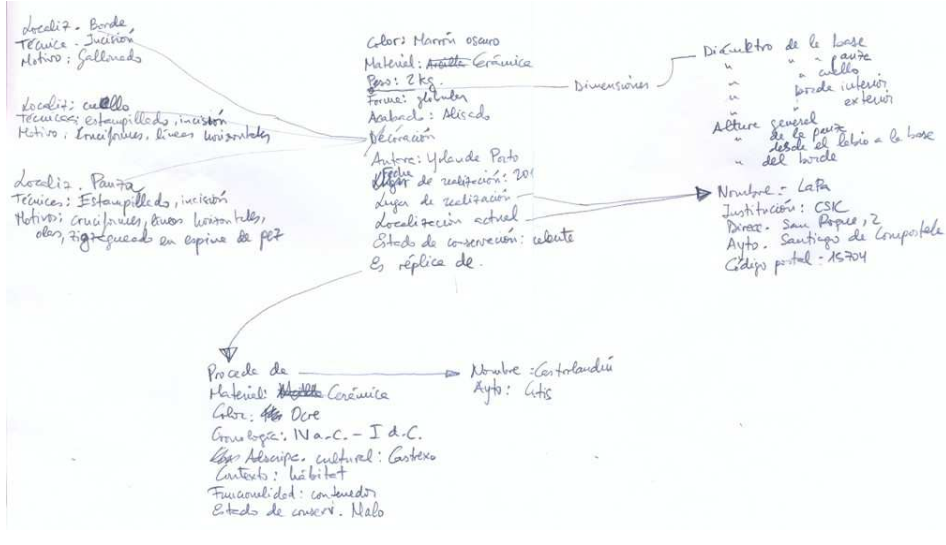 Localiz. Borde
Técnica. Incisión
Motivo: Gallonado
Localiz: cuello
Técnicas: estampillado, incisión
Motivo: Cruciformes, líneas horizontales
Localiz. Panza
Técnicas: Estampillado, incisión
Motivos: cruciformes, líneas horizontales,
olas, zigzagueado en espina de pez
Color: Marrón oscuro
Material: Arcilla Cerámica
Peso: 2 kg.
Forma: globular
Acabado: Alisado
Decoración
Autora: Yolanda Porto
Fecha
Lugar de realización: 201
Lugar de realización
Localización actual
Estado de conservación:
Es réplica de.
Dimensiones
Diámetro de la base
" " panza
" " cuello
" borde interior
" exterior
Altura general
" de la panza
" desde el labio a la base
del borde
Nombre: LaPa
Institución: CSIC
Direcc. San Roque, 2
Ayto. Santiago de Compostela
Código postal: 15704
Procede de
Material: Arcilla Cerámica
Color: Ocre
Cronología: IV a.C. - I d.C.
Adscripc. cultural: Castrexo
Contexto: hábitat
Funcionalidad: contenedor
Estado de conserv. Malo
Nombre: Castrolandín
Ayto: Cutis